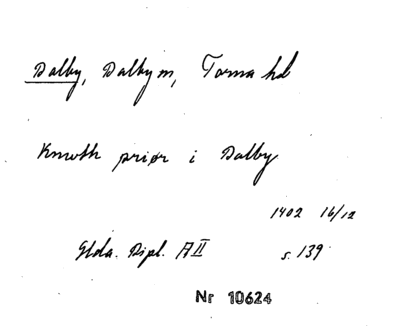 Dalby, Dalby m, Torna hd
Knuth prior i Dalby
1402 16/12
Dipl. A II s. 139
Nr 10624